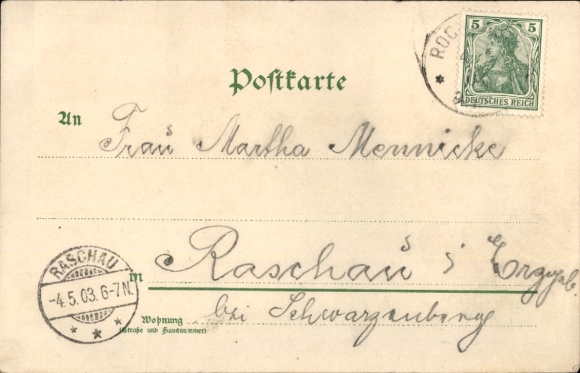 Postkarte
ROC
5 5
DEUTSCHES REICH
An Frau Martha Mennicke
RASCHAU
-4.5.03.6-7N.
in Raschau i Erzgeb.
Wohnung
(Straße und Hausnummer)
bei Schwarzenberg